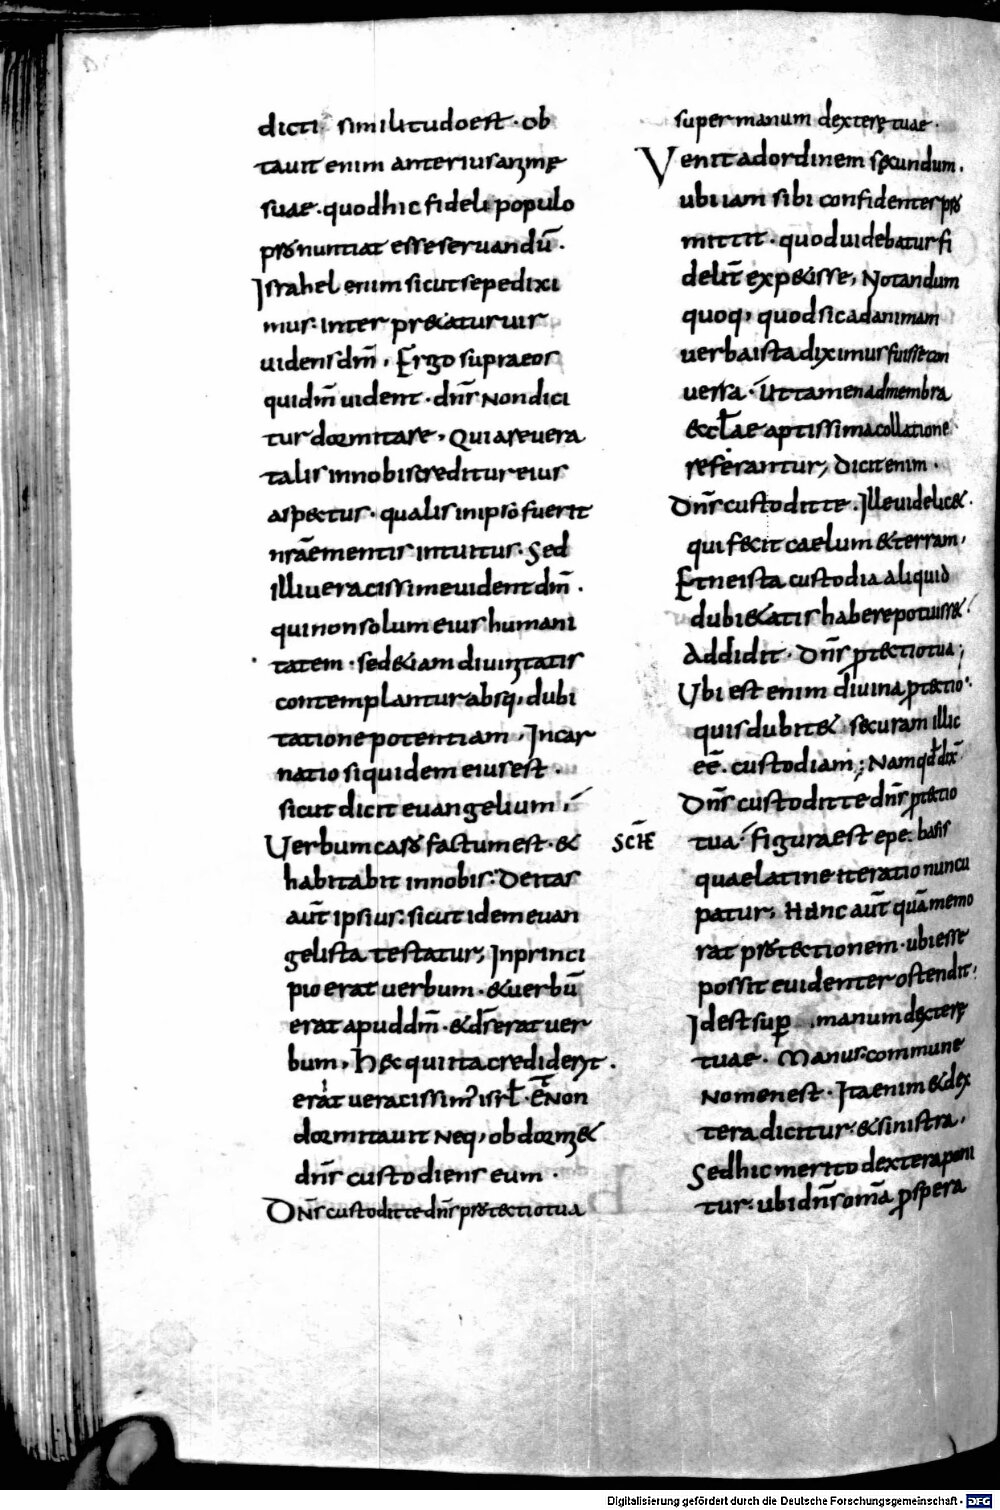 dicti similitudo est · ob
tauit enim anterius animę
suae · quod hic fideli populo
pronuntiat esse seruandū ·
Israhel enim sicut sepe dixi
mus · inter praetatur uir
uidens dm̄ · Ergo supra eos
qui dm̄ uident · dn̄s Non dici
tur dormitare · Quia reuera
talis in nobis creditur eius
aspectus · qualis in ipso fuerit
nrāe mentis intuitus · Sed
illi ueracissime uident dm̄ ·
qui non solum eius humani
tatem · sed &iam diuinitatis
contemplantur absq; dubi
tatione potentiam · Incar
natio siquidem eius est ·
sicut dicit euangelium ·
Uerbum caro factum est · &
habitabit in nobis · Deitas
aut̄ ipsius · sicut idem euan
gelista testatur; In princi
pio erat uerbum · & uerbū
erat apud dm̄ · & ds̄ erat uer
bum · H&c qui ita crediderit ·
erat ueracissim' isrl̄ · Et Non
dormitauit Neq; obdormi&
dn̄s custodiens eum ·
Dn̄s custodit te dn̄s protectio tua
super manum dexterę tuae ·
Venit ad ordinem secundum ·
ubi iam sibi confidenter pro
mittit · quod uidebatur fi
delit̄ exp&isse, Notandum
quoq; quod sic ad animam
uerba ista diximus fuisse con
uersa · Ut tamen ad membra
&ccl̄ae aptissima collatione
referantur; Dicit enim ·
Dn̄s custodit te · Ille uidelic& ·
qui fecit caelum & terram ·
Et ne ista custodia aliquid
dubi&atis habere potuiss& ·
Addidit · Dn̄s ptectio tua;
Ubi est enim diuina ptectio ·
quis dubit& · securam illic
eē · custodiam; Namqd dix̄
Dn̄s custodit te dn̄s ptectio
SCHE tua · figura est epe · basis
quae latine iteratio nuncu
patur; Hanc aut̄ quā memo
rat protectionem · ubi esse
possit euidenter ostendit:
Id est sup manum dexterę
tuae · Manus · commune
Nomen est · Ita enim & dex
tera dicitur · & sinistra ·
Sed hic merito dextera poni
tur · ubi dn̄s omā pspera
Digitalisierung gefördert durch die Deutsche Forschungsgemeinschaft - DFG